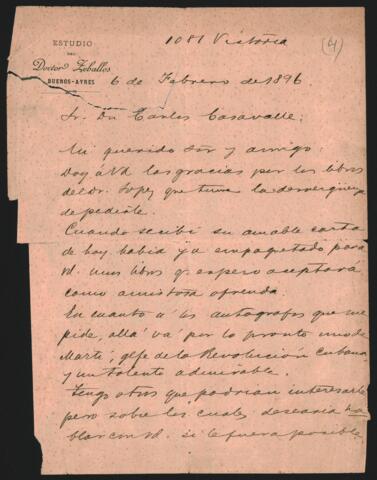 1081 Victoria
(4)
ESTUDIO
DEL
Doctor Zeballos
BUENOS-AYRES
6 de Febrero de 1896
Sr. Dn Carlos Casavalle:
Mi querido Sör y amigo:
Doy á Vd las gracias por los libros
del Dr. Lopez que tuve la desvergüenza
de pedirle.
Cuando recibí su amable carta
de hoy había ya empaquetado para
Vd. unos libros q. espero aceptará
como amistosa ofrenda.
En cuanto á los autógrafos que me
pide, allá vá por lo pronto uno de
Martí, gefe de la Revolución Cubana
y un talento admirable.
Tengo otros que podrían interesarle
pero sobre los cuales desearía ha
blar con Vd. si le fuera posible.